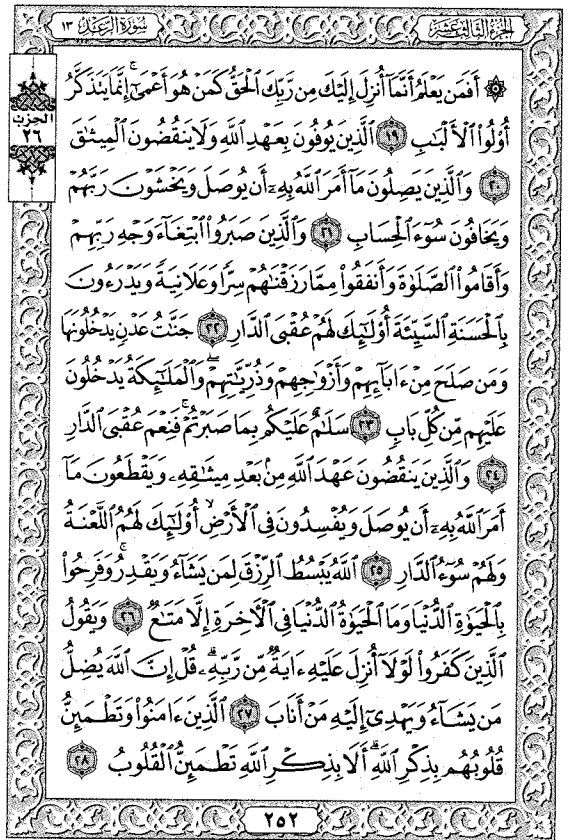 الجزء الثالث عشر
سورة الرعد ١٣
الحزب
٢٦
۞ أَفَمَن يَعْلَمُ أَنَّمَآ أُنزِلَ إِلَيْكَ مِن رَّبِّكَ ٱلْحَقُّ كَمَنْ هُوَ أَعْمَىٰٓ ۚ إِنَّمَا يَتَذَكَّرُ
أُو۟لُوا۟ ٱلْأَلْبَٰبِ ١٩ ٱلَّذِينَ يُوفُونَ بِعَهْدِ ٱللَّهِ وَلَا يَنقُضُونَ ٱلْمِيثَٰقَ
٢٠ وَٱلَّذِينَ يَصِلُونَ مَآ أَمَرَ ٱللَّهُ بِهِۦٓ أَن يُوصَلَ وَيَخْشَوْنَ رَبَّهُمْ
وَيَخَافُونَ سُوٓءَ ٱلْحِسَابِ ٢١ وَٱلَّذِينَ صَبَرُوا۟ ٱبْتِغَآءَ وَجْهِ رَبِّهِمْ
وَأَقَامُوا۟ ٱلصَّلَوٰةَ وَأَنفَقُوا۟ مِمَّا رَزَقْنَٰهُمْ سِرًّا وَعَلَانِيَةً وَيَدْرَءُونَ
بِٱلْحَسَنَةِ ٱلسَّيِّئَةَ أُو۟لَٰٓئِكَ لَهُمْ عُقْبَى ٱلدَّارِ ٢٢ جَنَّٰتُ عَدْنٍ يَدْخُلُونَهَا
وَمَن صَلَحَ مِنْ ءَابَآئِهِمْ وَأَزْوَٰجِهِمْ وَذُرِّيَّٰتِهِمْ ۖ وَٱلْمَلَٰٓئِكَةُ يَدْخُلُونَ
عَلَيْهِم مِّن كُلِّ بَابٍ ٢٣ سَلَٰمٌ عَلَيْكُم بِمَا صَبَرْتُمْ ۚ فَنِعْمَ عُقْبَى ٱلدَّارِ
٢٤ وَٱلَّذِينَ يَنقُضُونَ عَهْدَ ٱللَّهِ مِنۢ بَعْدِ مِيثَٰقِهِۦ وَيَقْطَعُونَ مَآ
أَمَرَ ٱللَّهُ بِهِۦٓ أَن يُوصَلَ وَيُفْسِدُونَ فِى ٱلْأَرْضِ ۙ أُو۟لَٰٓئِكَ لَهُمُ ٱللَّعْنَةُ
وَلَهُمْ سُوٓءُ ٱلدَّارِ ٢٥ ٱللَّهُ يَبْسُطُ ٱلرِّزْقَ لِمَن يَشَآءُ وَيَقْدِرُ ۚ وَفَرِحُوا۟
بِٱلْحَيَوٰةِ ٱلدُّنْيَا وَمَا ٱلْحَيَوٰةُ ٱلدُّنْيَا فِى ٱلْأَخِرَةِ إِلَّا مَتَٰعٌ ٢٦ وَيَقُولُ
ٱلَّذِينَ كَفَرُوا۟ لَوْلَآ أُنزِلَ عَلَيْهِ ءَايَةٌ مِّن رَّبِّهِۦ ۗ قُلْ إِنَّ ٱللَّهَ يُضِلُّ
مَن يَشَآءُ وَيَهْدِىٓ إِلَيْهِ مَنْ أَنَابَ ٢٧ ٱلَّذِينَ ءَامَنُوا۟ وَتَطْمَئِنُّ
قُلُوبُهُم بِذِكْرِ ٱللَّهِ ۗ أَلَا بِذِكْرِ ٱللَّهِ تَطْمَئِنُّ ٱلْقُلُوبُ ٢٨
٢٥٢